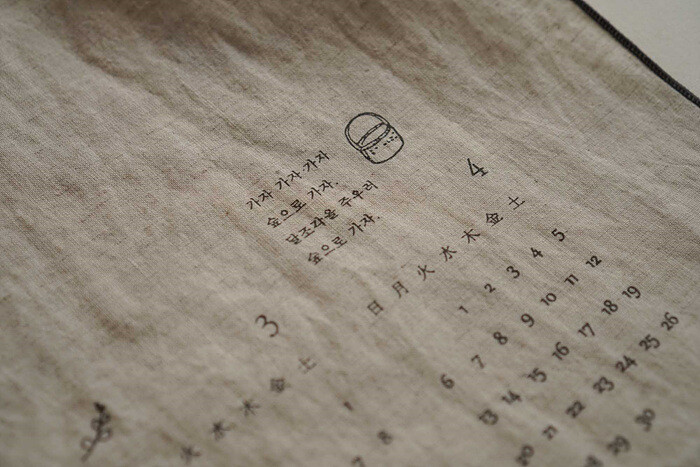 가자 가자 가자
숲으로 가자.
달조각을 주우러
숲으로 가자.
4
日 月 火 水 木 金 土
1 2 3 4 5
6 7 8 9 10 11 12
13 14 15 16 17 18 19
20 21 22 23 24 25 26
28 29 30
3
火 水 木 金 土
1
7 8